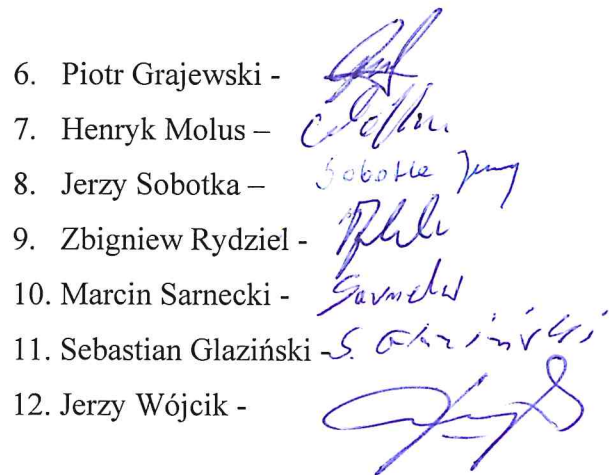 6. Piotr Grajewski -
7. Henryk Molus –
8. Jerzy Sobotka – Sobotka Jerzy
9. Zbigniew Rydziel -
10. Marcin Sarnecki -
11. Sebastian Glaziński - S. Glaziński
12. Jerzy Wójcik -